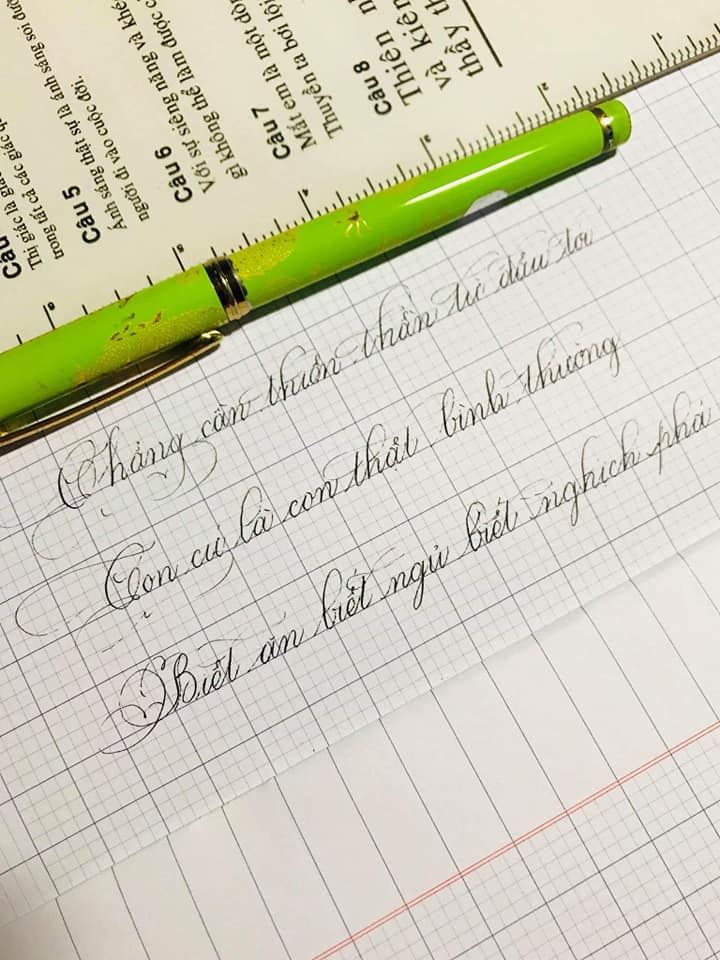 Câu
Thị giác là giác
trong tất cả các giác qu
Câu 5
Ánh sáng thật sự là ánh sáng soi đườ
người đi vào cuộc đời.
Câu 6
Với sự siêng năng và
gì không thể làm được
Câu 7
Mắt em là một
Thuyền ta bơi lội
Câu 8
Thiên
và kiên
thầy
Chẳng cần thiên thần từ đâu tới
Con cứ là con thật bình thường
Biết ăn biết ngủ biết nghịch phá